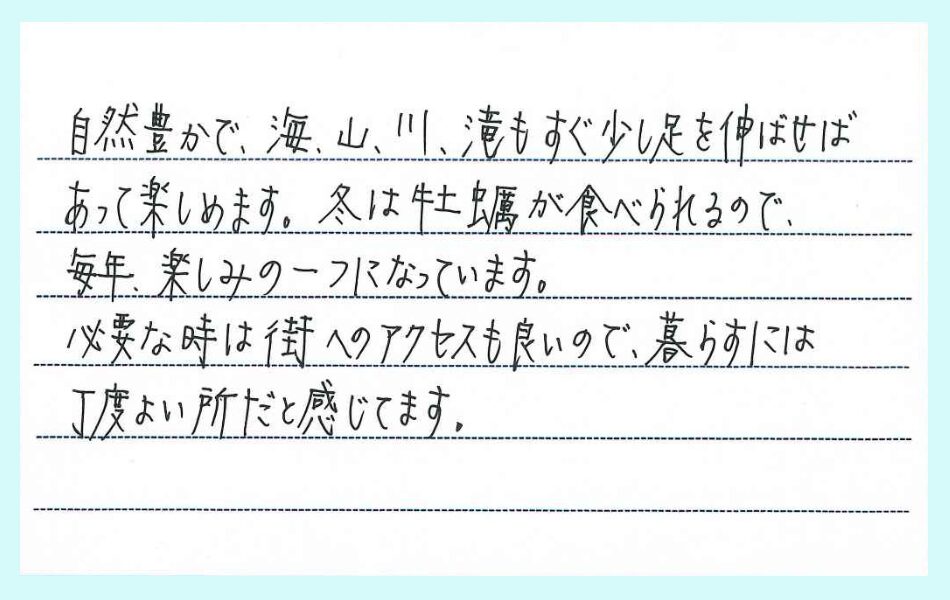 自然豊かで、海、山、川、滝もすぐ少し足を伸ばせば
あって楽しめます。冬は牡蠣が食べられるので、
毎年、楽しみの一つになっています。
必要な時は街へのアクセスも良いので、暮らすには
丁度よい所だと感じてます。